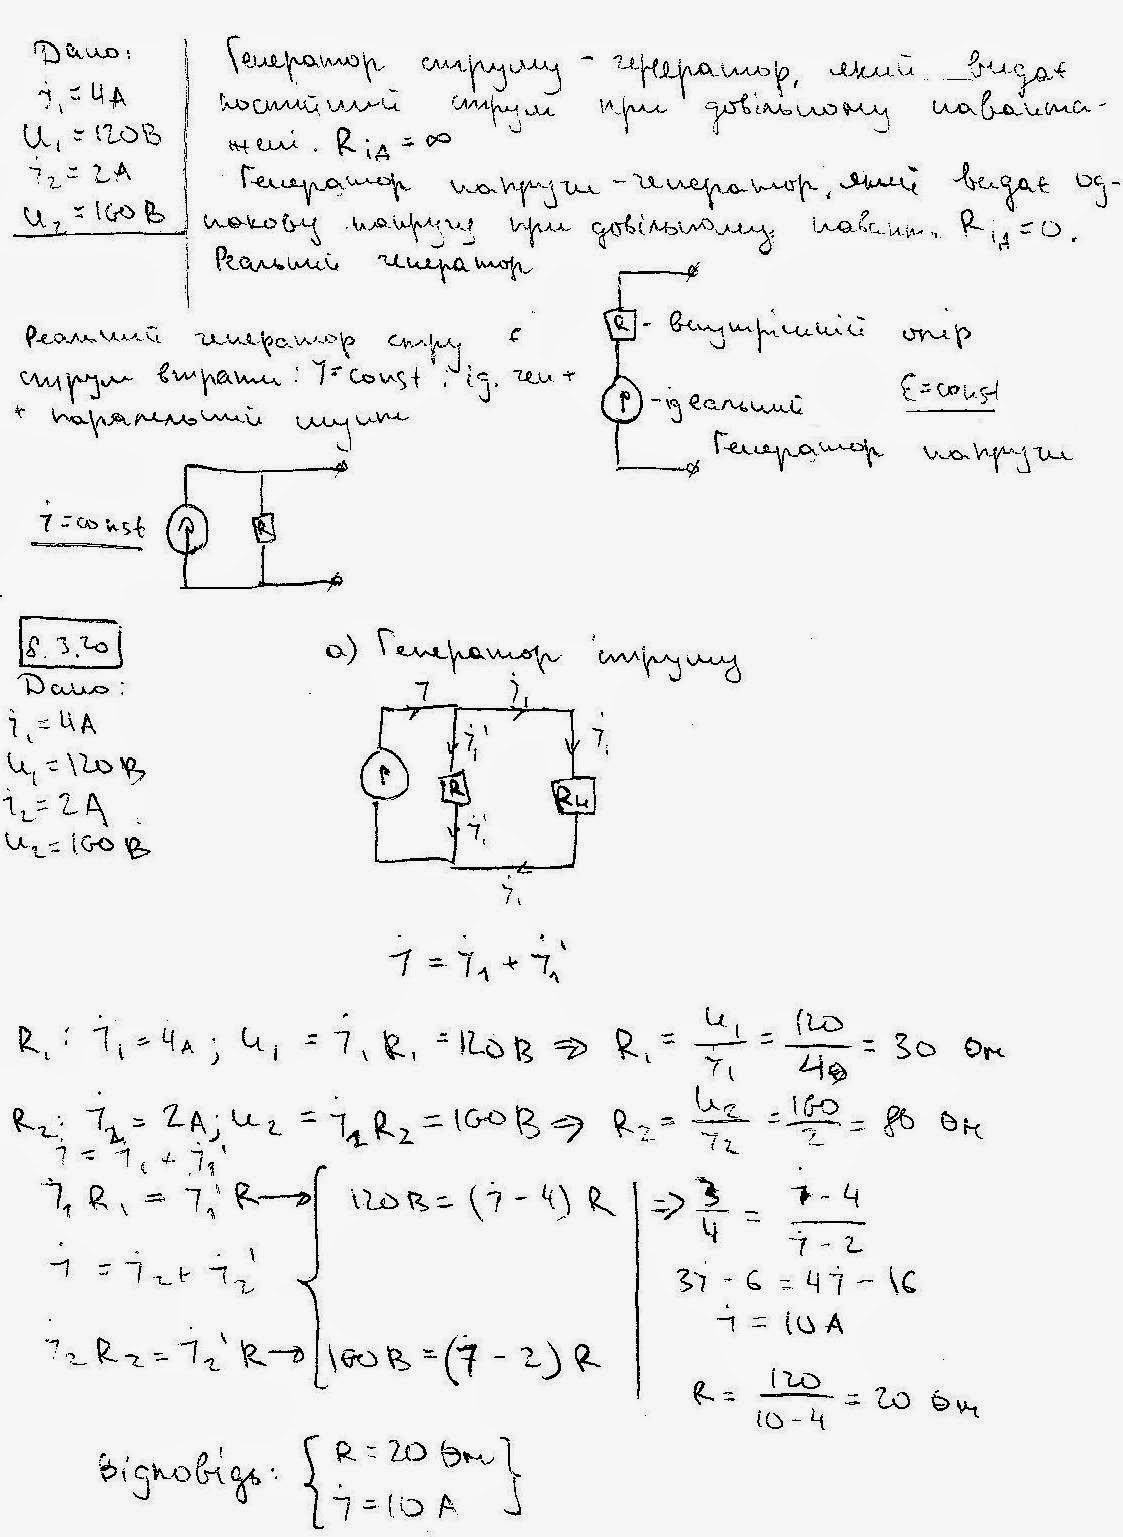 Дано:
i₁ = 4A
U₁ = 120В
i₂ = 2A
U₂ = 160В
Генератор струму - генератор, який видає
постійний струм при довільному наванта-
жені. RiA = ∞
Генератор напруги - генератор, який видає од-
накову напругу при довільному навант. RiA = 0.
Реальний генератор
R - внутрішній опір
- ідеальний ℰ = const
Генератор напруги
Реальний генератор стру є
струм втрати: i = const : ід. ген +
+ паралельний шунт
i = const
R
8.3.20
Дано:
i₁ = 4A
U₁ = 120В
i₂ = 2A
U₂ = 160В
а) Генератор струму
i i₁
i₁' i₁
R Rн
i₁'
i₁
i = i₁ + i₁'
R₁: i₁ = 4A; U₁ = i₁ R₁ = 120В => R₁ = U₁/i₁ = 120/4 = 30 Ом
R₂: i₂ = 2A; U₂ = i₂ R₂ = 160В => R₂ = U₂/i₂ = 160/2 = 80 Ом
i = i₁ + i₁'
i₁ R₁ = i₁' R → { 120В = (i - 4) R | => 3/4 = (i - 4)/(i - 2)
i = i₂ + i₂'
3i - 6 = 4i - 16
i = 10A
i₂ R₂ = i₂' R → 160В = (i - 2) R
R = 120/(10 - 4) = 20 Ом
Відповідь: { R = 20 Ом
i = 10A }